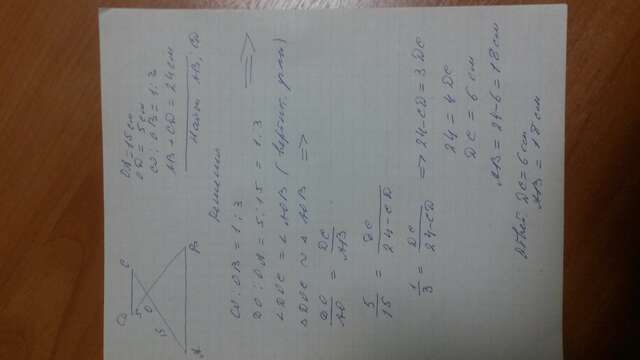 A
15
D
5
O
B
C
OA = 15 см
OD = 5 см
CO : OB = 1 : 3
AB + CD = 24 см
Найти AB, CD
Решение
CO : OB = 1 : 3
DO : OA = 5 : 15 = 1 : 3 ⟹
∠DOC = ∠AOB (вертик. углы)
△DOC ~ △AOB ⟹
DO/AO = DC/AB
5/15 = DC/24-CD
1/3 = DC/24-CD ⟹ 24-CD = 3DC
24 = 4DC
DC = 6 см
AB = 24-6 = 18 см
Ответ: DC = 6 см
AB = 18 см